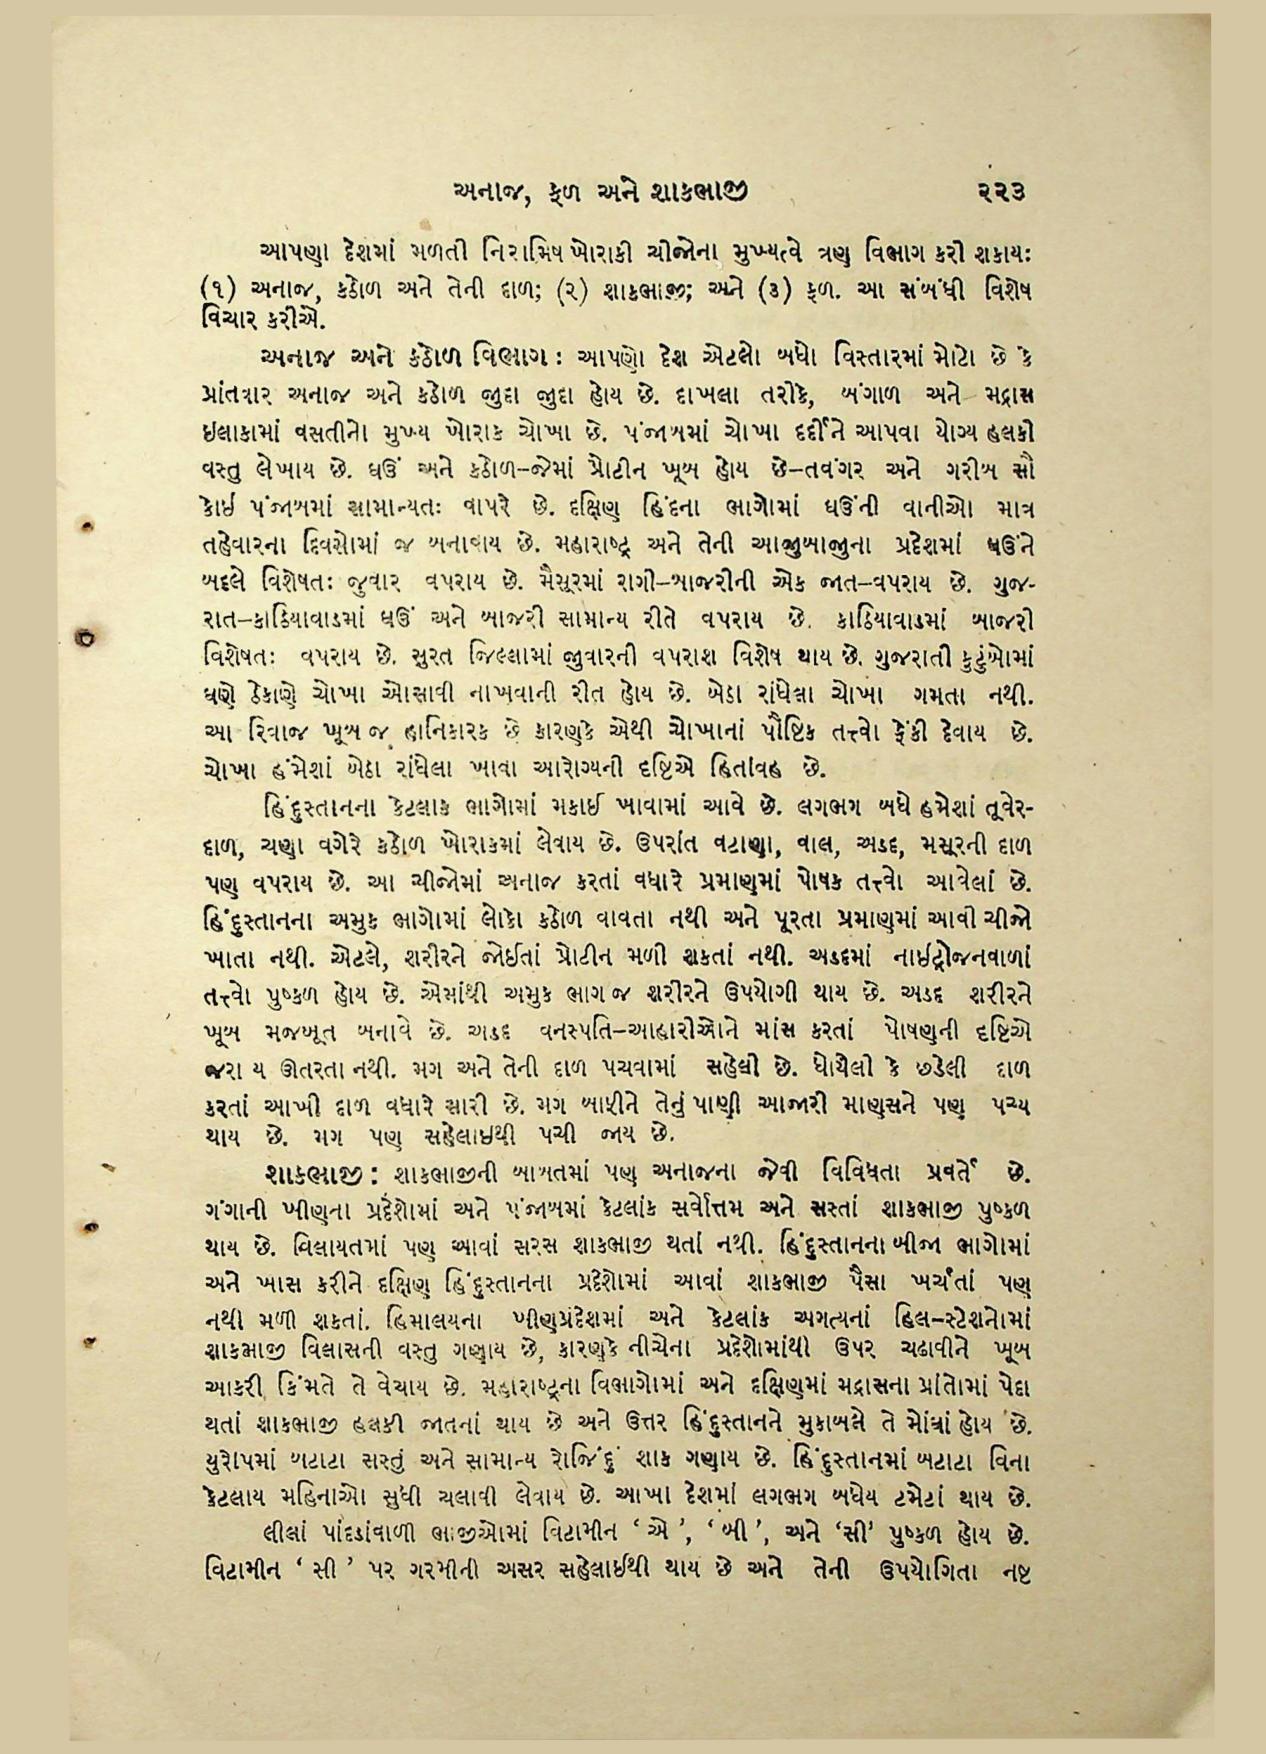 અનાજ, ફળ અને શાકભાજી ૨૨૩
આપણા દેશમાં મળતી નિરામિષ ખોરાકી ચીજોના મુખ્યત્વે ત્રણ વિભાગ કરી શકાય:
(૧) અનાજ, કઠોળ અને તેની દાળ; (૨) શાકભાજી; અને (૩) ફળ. આ સંબંધી વિશેષ
વિચાર કરીએ.
અનાજ અને કઠોળ વિભાગ : આપણો દેશ એટલો બધો વિસ્તારમાં મોટો છે કે
પ્રાંતવાર અનાજ અને કઠોળ જુદા જુદા હોય છે. દાખલા તરીકે, બંગાળ અને મદ્રાસ
ઇલાકામાં વસતીનો મુખ્ય ખોરાક ચોખા છે. પંજાબમાં ચોખા દર્દીને આપવા યોગ્ય હલકી
વસ્તુ લેખાય છે. ઘઉં અને કઠોળ–જેમાં પ્રૌટીન ખૂબ હોય છે–તવંગર અને ગરીબ સૌ
કોઇ પંજાબમાં સામાન્યતઃ વાપરે છે. દક્ષિણ હિંદના ભાગોમાં ઘઉંની વાનીઓ માત્ર
તહેવારના દિવસોમાં જ બનાવાય છે. મહારાષ્ટ્ર અને તેની આજુબાજુના પ્રદેશમાં ઘઉંને
બદલે વિશેષતઃ જુવાર વપરાય છે. મૈસૂરમાં રાગી–બાજરીની એક જાત–વપરાય છે. ગુજ-
રાત–કાઠિયાવાડમાં ઘઉં અને બાજરી સામાન્ય રીતે વપરાય છે. કાઠિયાવાડમાં બાજરી
વિશેષતઃ વપરાય છે. સુરત જિલ્લામાં જુવારની વપરાશ વિશેષ થાય છે. ગુજરાતી કુટુંબોમાં
ઘણે ઠેકાણે ચોખા ઓસાવી નાખવાની રીત હોય છે. બેઠા રાંધેલા ચોખા ગમતા નથી.
આ રિવાજ ખૂબ જ હાનિકારક છે કારણકે એથી ચોખાનાં પૌષ્ટિક તત્ત્વો ફેંકી દેવાય છે.
ચોખા હંમેશાં બેઠા રાંધેલા ખાવા આરોગ્યની દૃષ્ટિએ હિતાવહ છે.
હિંદુસ્તાનના કેટલાક ભાગોમાં મકાઈ ખાવામાં આવે છે. લગભગ બધે હમેશાં તૂવેર-
દાળ, ચણા વગેરે કઠોળ ખોરાકમાં લેવાય છે. ઉપરાંત વટાણા, વાલ, અડદ, મસૂરની દાળ
પણ વપરાય છે. આ ચીજોમાં અનાજ કરતાં વધારે પ્રમાણમાં પોષક તત્ત્વો આવેલાં છે.
હિંદુસ્તાનના અમુક ભાગોમાં લોકો કઠોળ વાવતા નથી અને પૂરતા પ્રમાણમાં આવી ચીજો
ખાતા નથી. એટલે, શરીરને જોઈતાં પ્રોટીન મળી શકતાં નથી. અડદમાં નાઇટ્રોજનવાળાં
તત્ત્વો પુષ્કળ હોય છે. એમાંથી અમુક ભાગ જ શરીરને ઉપયોગી થાય છે. અડદ શરીરને
ખૂબ મજબૂત બનાવે છે. અડદ વનસ્પતિ–આહારીઓને માંસ કરતાં પોષણની દૃષ્ટિએ
જરા ય ઊતરતા નથી. મગ અને તેની દાળ પચવામાં સહેલી છે. ધોયેલી કે છડેલી દાળ
કરતાં આખી દાળ વધારે સારી છે. મગ બાફીને તેનું પાણી આજારી માણસને પણ પચ્ય
થાય છે. મગ પણ સહેલાઇથી પચી જાય છે.
શાકભાજી : શાકભાજીની બાબતમાં પણ અનાજના જેવી વિવિધતા પ્રવર્તે છે.
ગંગાની ખીણના પ્રદેશોમાં અને પંજાબમાં કેટલાંક સર્વોત્તમ અને સસ્તાં શાકભાજી પુષ્કળ
થાય છે. વિલાયતમાં પણ આવાં સરસ શાકભાજી થતાં નથી. હિંદુસ્તાનના બીજા ભાગોમાં
અને ખાસ કરીને દક્ષિણ હિંદુસ્તાનના પ્રદેશોમાં આવાં શાકભાજી પૈસા ખર્ચતાં પણ
નથી મળી શકતાં. હિમાલયના ખીણપ્રદેશમાં અને કેટલાંક અગત્યનાં હિલ–સ્ટેશનોમાં
શાકભાજી વિલાસની વસ્તુ ગણાય છે, કારણકે નીચેના પ્રદેશોમાંથી ઉપર ચઢાવીને ખૂબ
આકરી કિંમતે તે વેચાય છે. મહારાષ્ટ્રના વિભાગોમાં અને દક્ષિણમાં મદ્રાસના પ્રાંતોમાં પેદા
થતાં શાકભાજી હલકી જાતનાં થાય છે અને ઉત્તર હિંદુસ્તાનને મુકાબલે તે મોંઘાં હોય છે.
યુરોપમાં બટાટા સસ્તું અને સામાન્ય રોજિંદું શાક ગણાય છે. હિંદુસ્તાનમાં બટાટા વિના
કેટલાય મહિનાઓ સુધી ચલાવી લેવાય છે. આખા દેશમાં લગભગ બધેય ટમેટાં થાય છે.
લીલાં પાંદડાંવાળી ભાજીઓમાં વિટામીન ‘ એ ’, ‘ બી ’, અને ‘સી’ પુષ્કળ હોય છે.
વિટામીન ‘ સી ’ પર ગરમીની અસર સહેલાઈથી થાય છે અને તેની ઉપયોગિતા નષ્ટ